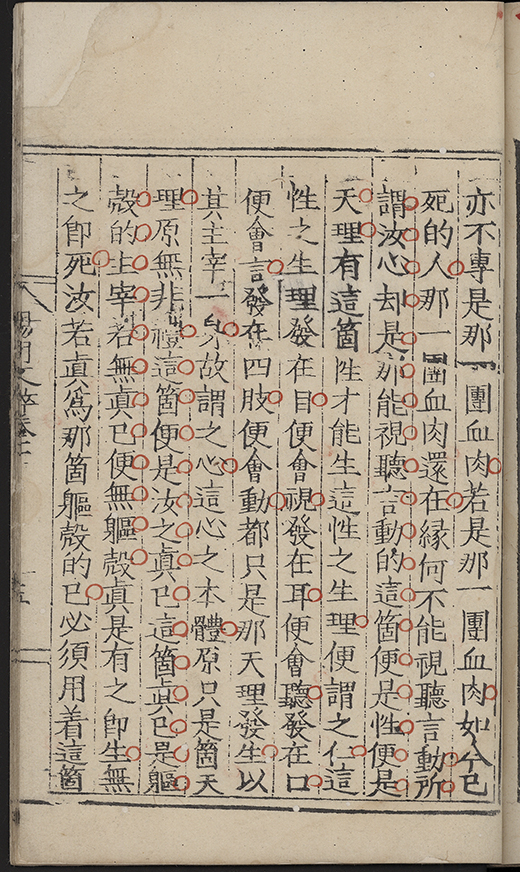 亦不專是那一團血肉若是那一團血肉如今已
死的人那一團血肉還在緣何不能視聽言動所
謂汝心却是那能視聽言動的這箇便是性便是
天理有這箇性才能生這性之生理便謂之仁這
性之生理發在目便會視發在耳便會聽發在口
便會言發在四肢便會動都只是那天理發生以
其主宰一身故謂之心這心之本體原只是箇天
理原無非禮這箇便是汝之真己這箇真己是軀
殼的主宰若無真己便無軀殼真是有之卽生無
之卽死汝若真為那箇軀殼的己必須用着這箇
陽明文粹卷十
十五